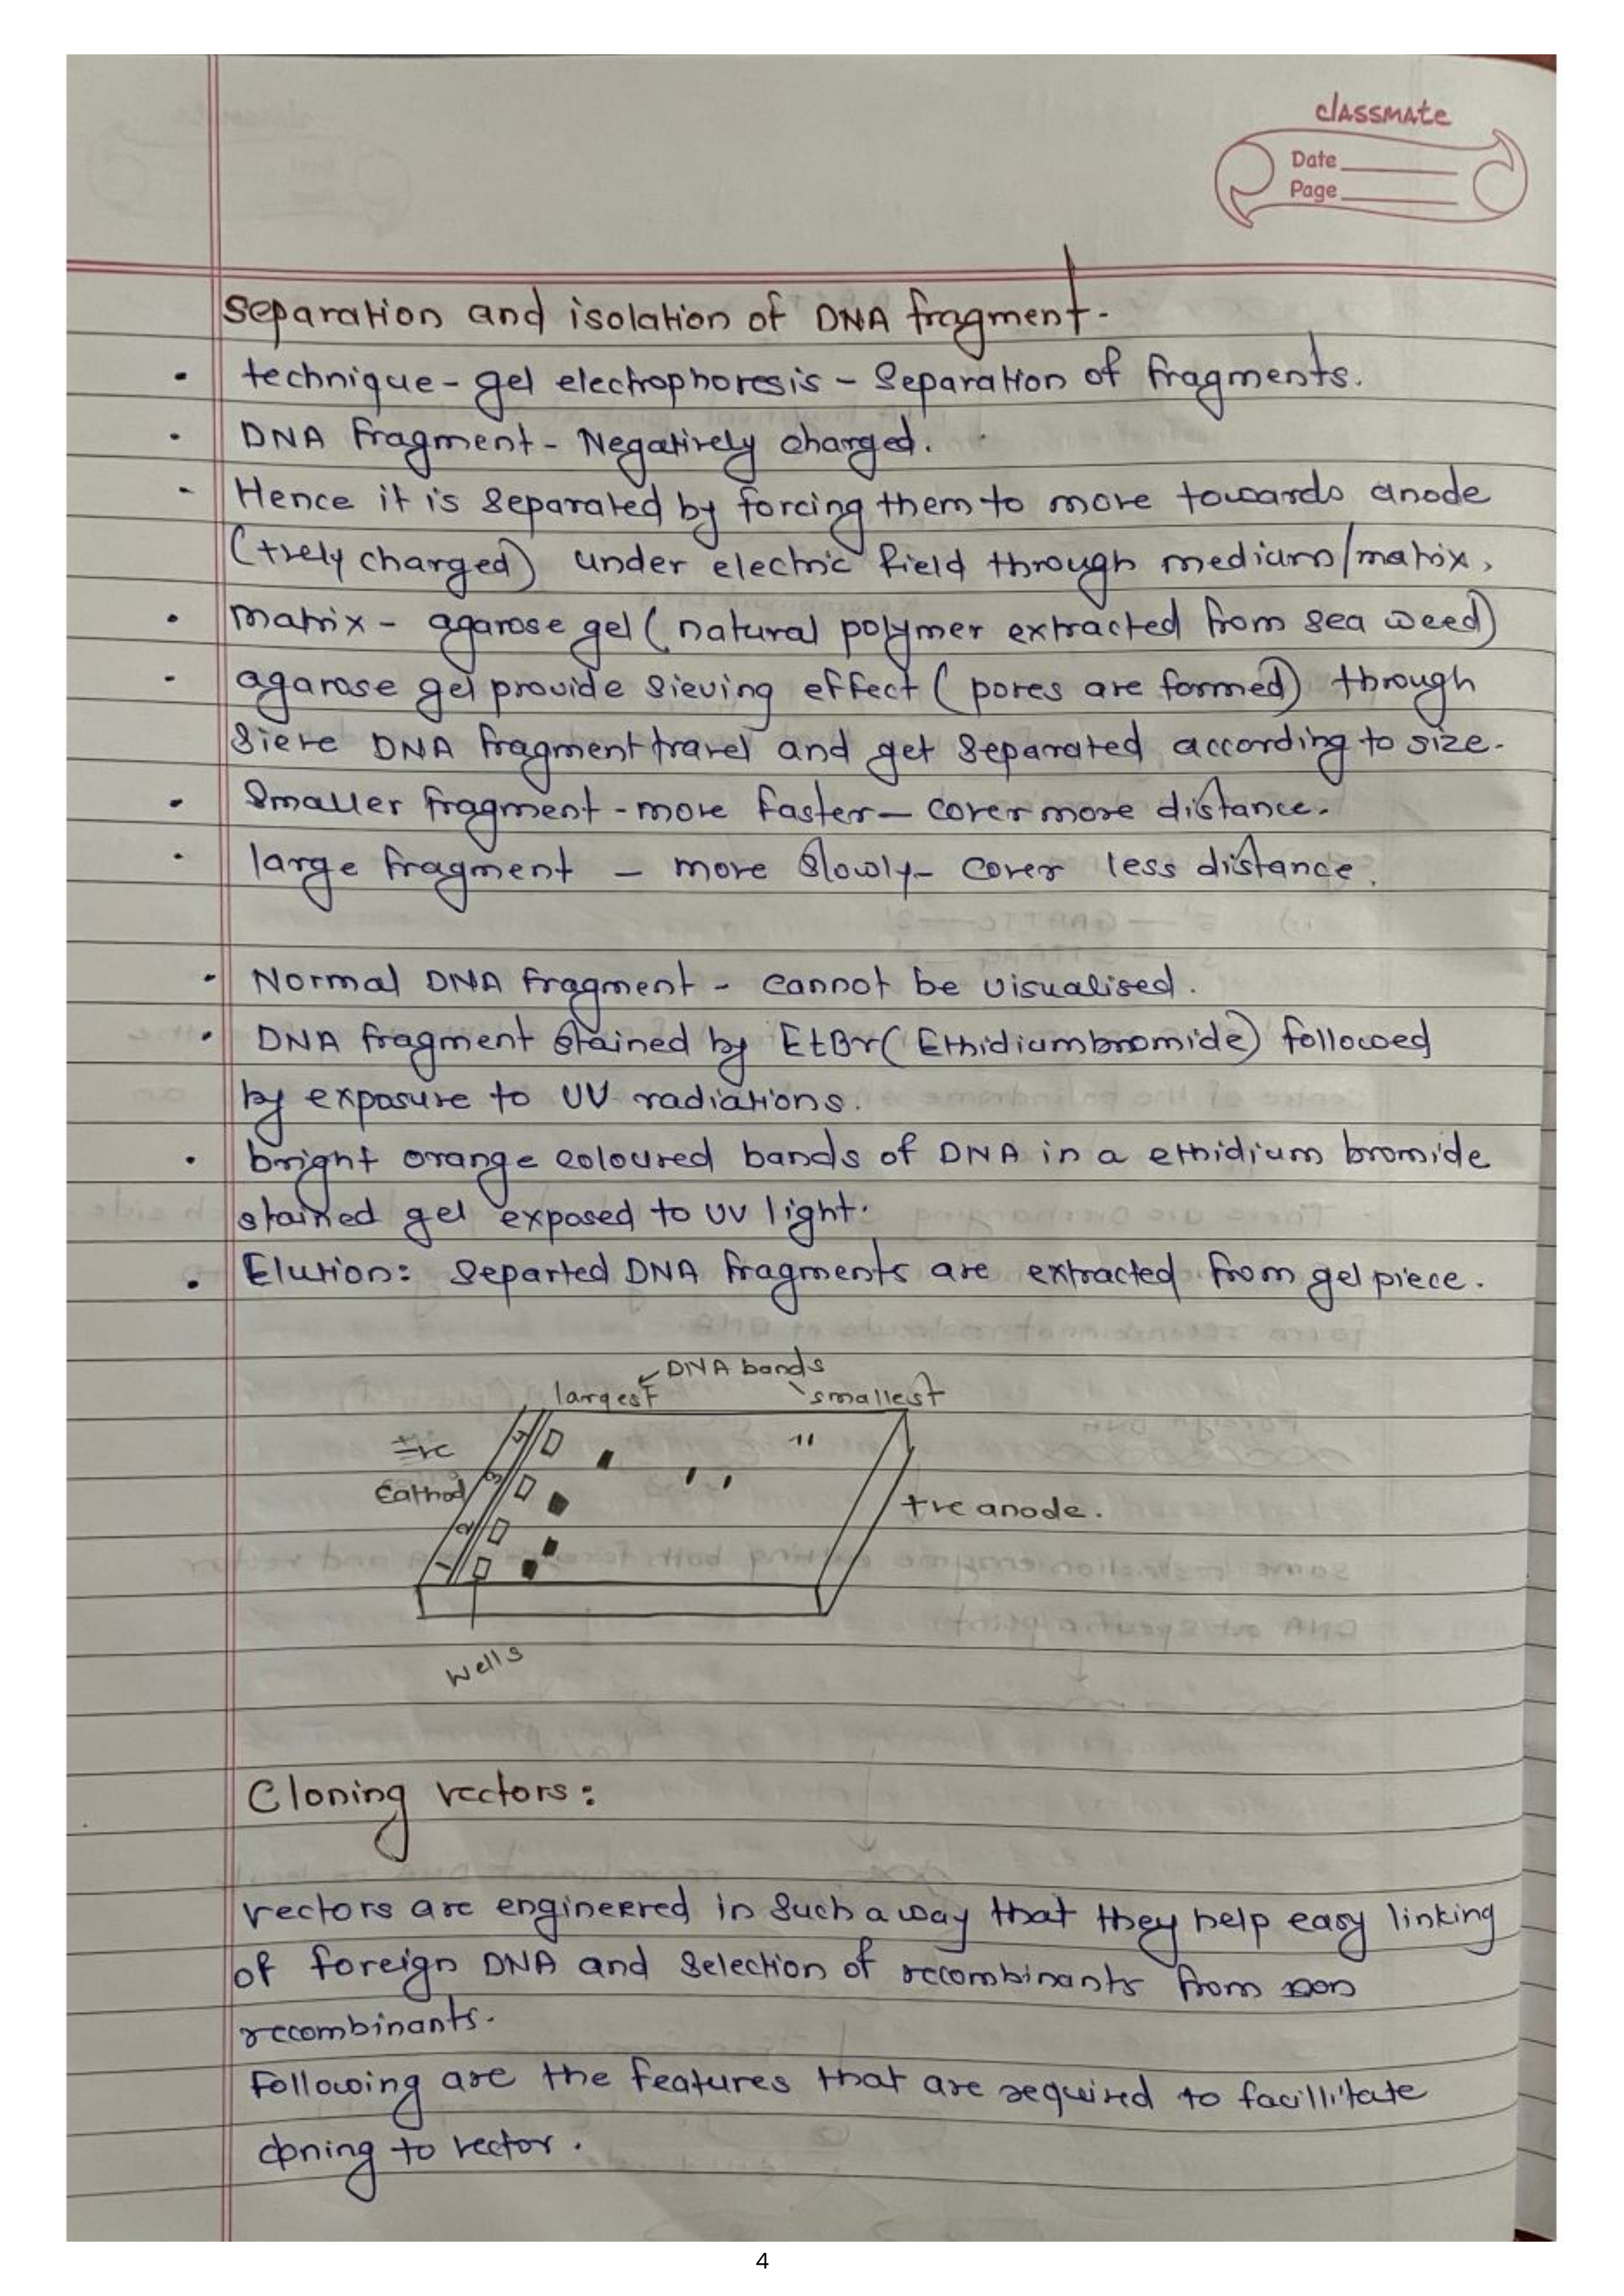 classmate
Date
Page
Separation and isolation of DNA fragment.
• technique - gel electrophoresis - Separation of fragments.
• DNA fragment - Negatively charged.
- Hence it is separated by forcing them to move towards anode
(+vely charged) under electric field through medium/matrix,
• matrix - agarose gel ( natural polymer extracted from sea weed)
• agarose gel provide sieving effect ( pores are formed) through
Sieve DNA fragment travel and get separated according to size.
• Smaller fragment - move faster - cover more distance.
• large fragment - move slowly - cover less distance.
• Normal DNA fragment - cannot be visualised.
• DNA fragment stained by EtBr( Ethidiumbromide) followed
by exposure to UV radiations.
• bright orange coloured bands of DNA in a ethidium bromide
stained gel exposed to UV light.
• Elution: Separted DNA fragments are extracted from gel piece.
DNA bands
largest smallest
Cathod
+ve anode.
4
3
2
1
Wells
Cloning vectors:
vectors are engineered in such a way that they help easy linking
of foreign DNA and selection of recombinants from non
recombinants.
Following are the features that are required to facillitate
cloning to vector.
4